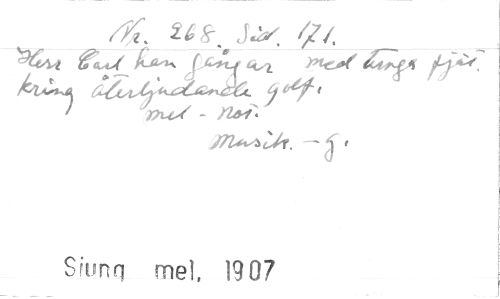 Nr. 268. Sid. 171.
Herr Carl han gångar med tunga fjät.
kring återljudande golf.
mel - not.
Musik. - g.
Siung mel, 1907